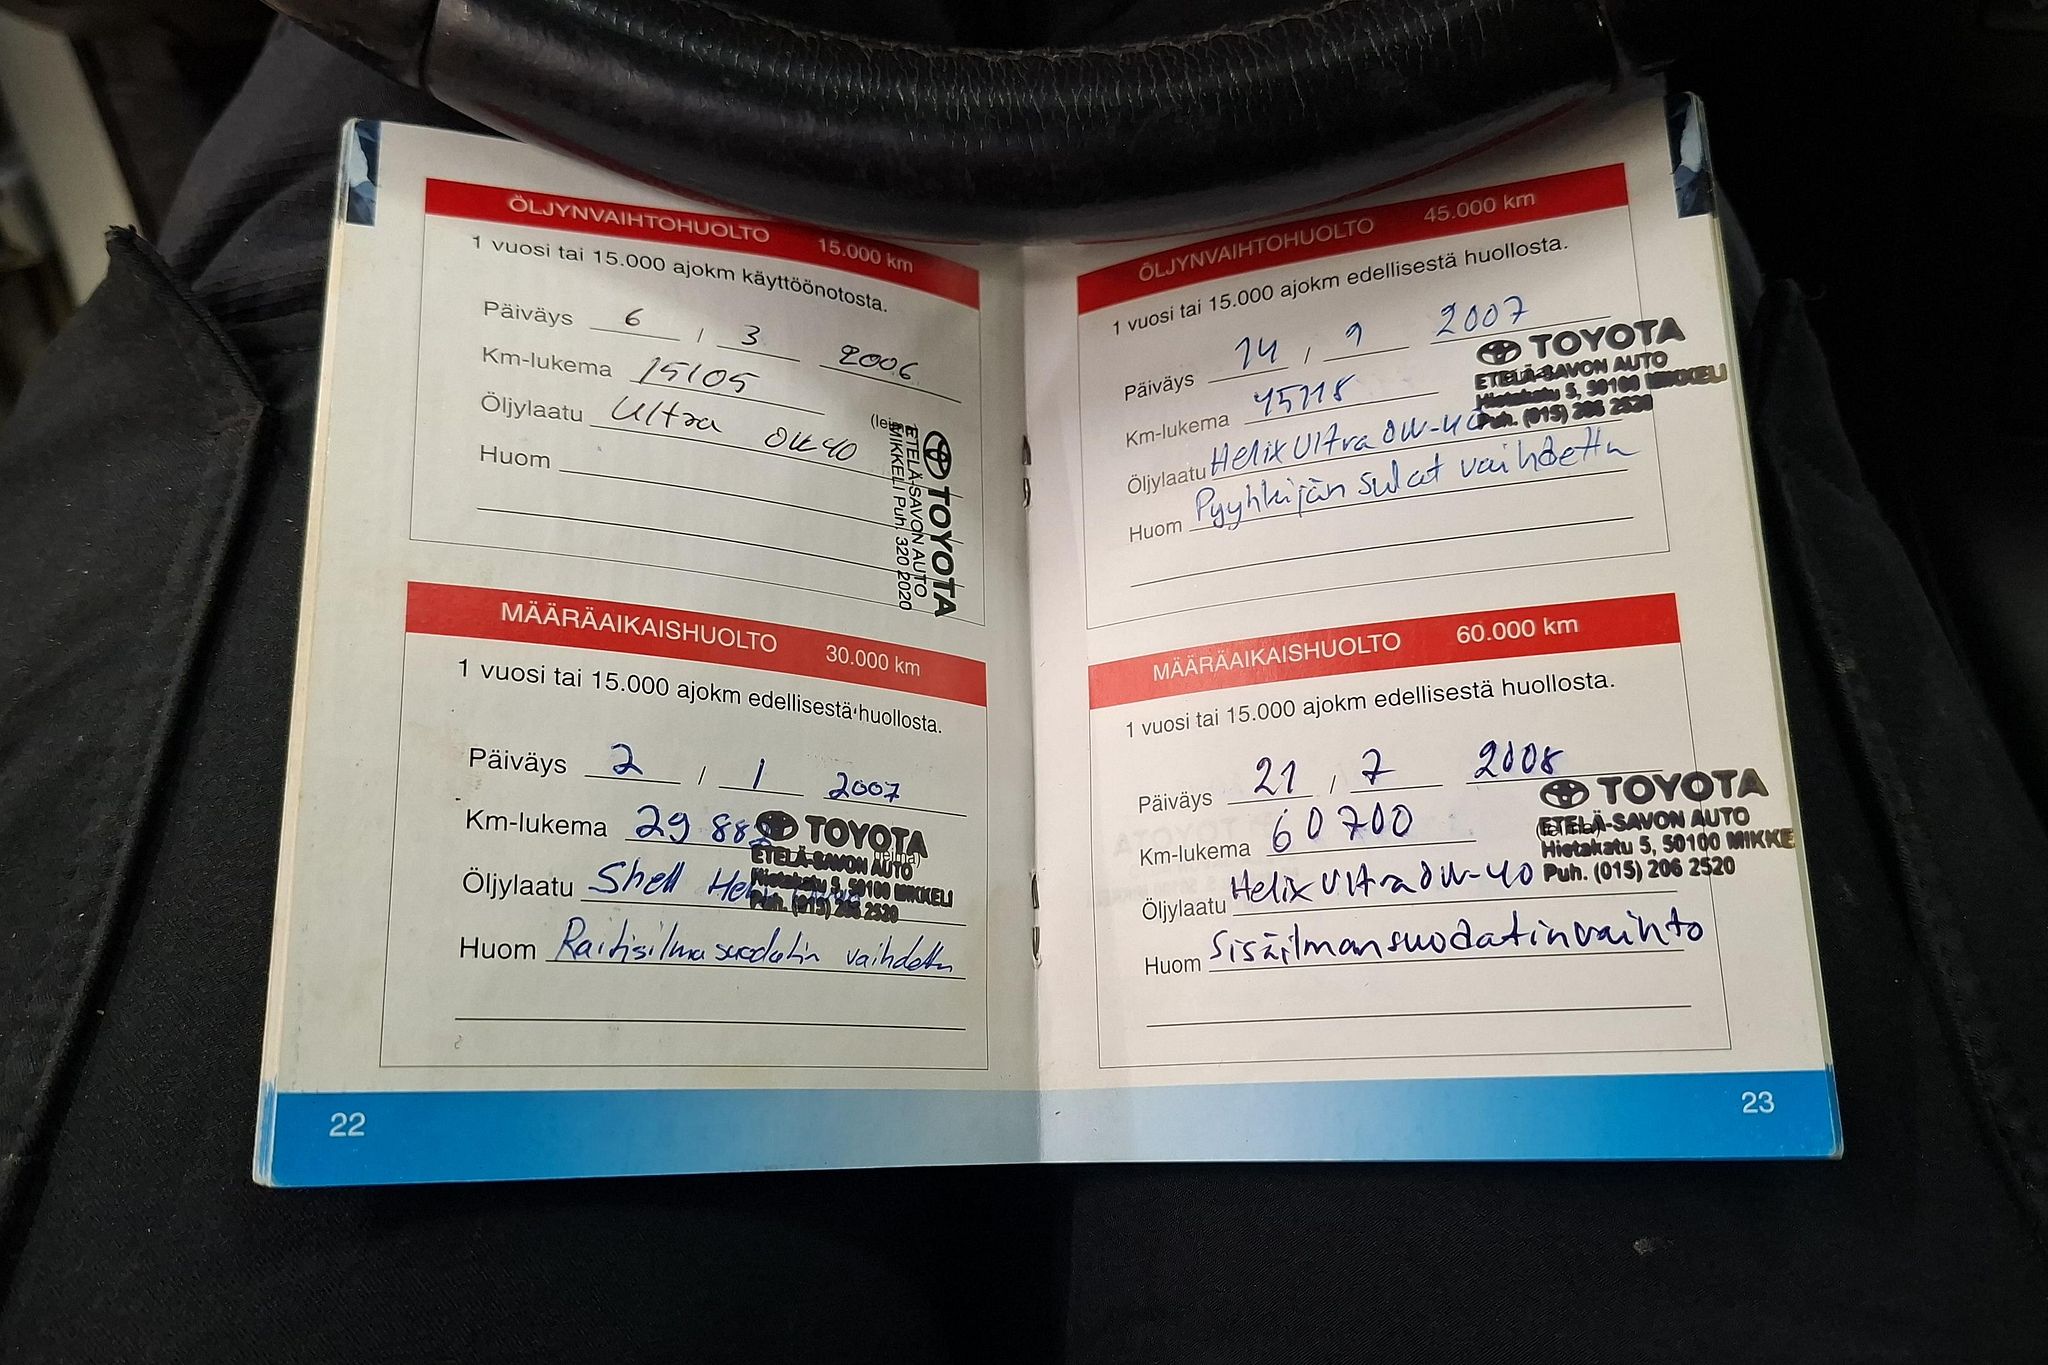 ÖLJYNVAIHTOHUOLTO 15.000 km
1 vuosi tai 15.000 ajokm käyttöönotosta.
Päiväys 6 / 3 2006
Km-lukema 15105
Öljylaatu Ultra 0W40
(leima)
Huom
TOYOTA
ETELÄ-SAVON AUTO
MIKKELI Puh. 320 2020
MÄÄRÄAIKAISHUOLTO 30.000 km
1 vuosi tai 15.000 ajokm edellisestä huollosta.
Päiväys 2 / 1 2007
Km-lukema 29 88
Öljylaatu Shell
Huom Raitisilmasuodatin vaihdettu
TOYOTA
ETELÄ-SAVON AUTO
Hietakatu 5, 50100 MIKKELI
Puh. (015) 206 2520
22
ÖLJYNVAIHTOHUOLTO 45.000 km
1 vuosi tai 15.000 ajokm edellisestä huollosta.
Päiväys 14 / 9 2007
Km-lukema 45118
Öljylaatu Helix Ultra 0W-40
Huom Pyyhkijän sulat vaihdettu
TOYOTA
ETELÄ-SAVON AUTO
Hietakatu 5, 50100 MIKKELI
Puh. (015) 206 2520
MÄÄRÄAIKAISHUOLTO 60.000 km
1 vuosi tai 15.000 ajokm edellisestä huollosta.
Päiväys 21 / 7 2008
Km-lukema 60700
Öljylaatu Helix Ultra 0W-40
Huom Sisäilmansuodatinvaihto
TOYOTA
ETELÄ-SAVON AUTO
Hietakatu 5, 50100 MIKKE
Puh. (015) 206 2520
23